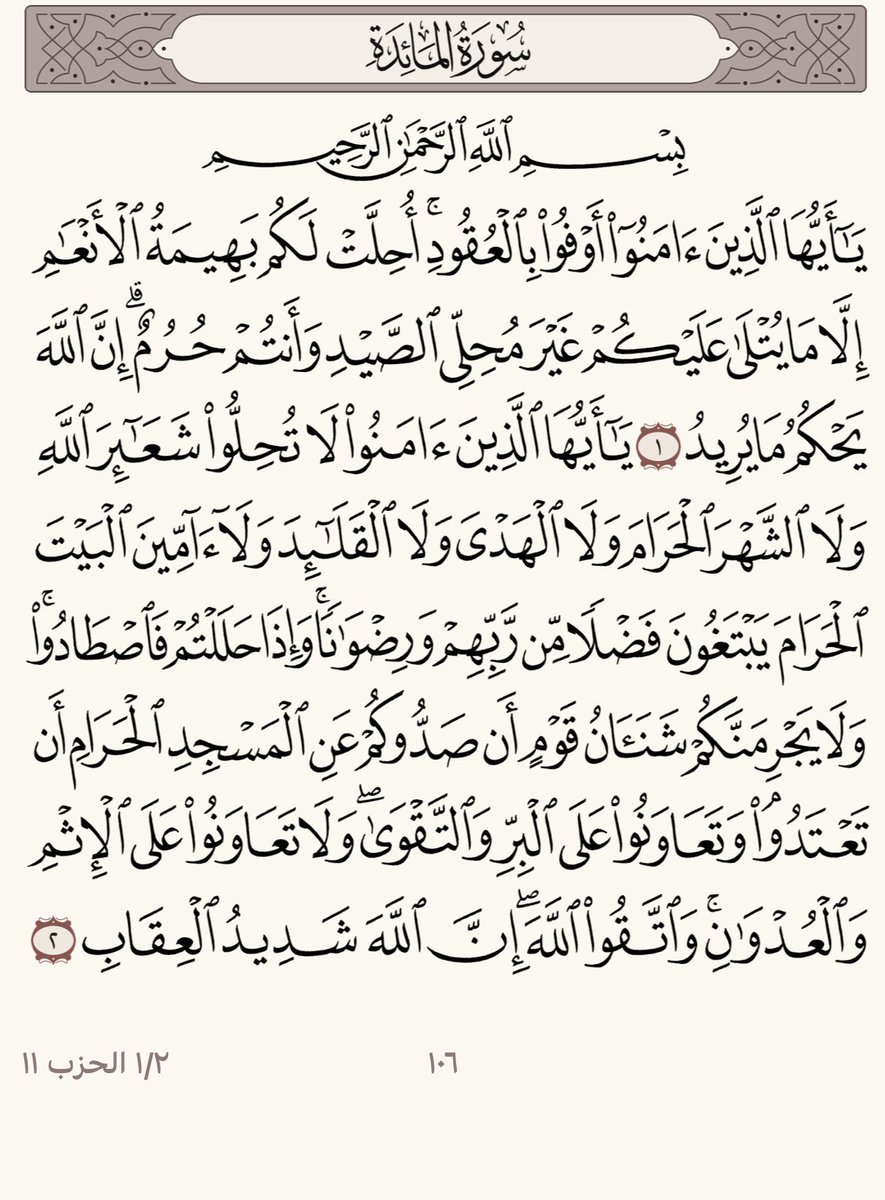 سُورَةُ المَائِدَةِ
بِسْمِ ٱللَّهِ ٱلرَّحْمَٰنِ ٱلرَّحِيمِ
يَٰٓأَيُّهَا ٱلَّذِينَ ءَامَنُوٓا۟ أَوْفُوا۟ بِٱلْعُقُودِۚ أُحِلَّتْ لَكُم بَهِيمَةُ ٱلْأَنْعَٰمِ
إِلَّا مَا يُتْلَىٰ عَلَيْكُمْ غَيْرَ مُحِلِّى ٱلصَّيْدِ وَأَنتُمْ حُرُمٌۗ إِنَّ ٱللَّهَ
يَحْكُمُ مَا يُرِيدُ ١ يَٰٓأَيُّهَا ٱلَّذِينَ ءَامَنُوا۟ لَا تُحِلُّوا۟ شَعَٰٓئِرَ ٱللَّهِ
وَلَا ٱلشَّهْرَ ٱلْحَرَامَ وَلَا ٱلْهَدْىَ وَلَا ٱلْقَلَٰٓئِدَ وَلَآ ءَآمِّينَ ٱلْبَيْتَ
ٱلْحَرَامَ يَبْتَغُونَ فَضْلًا مِّن رَّبِّهِمْ وَرِضْوَٰنًاۚ وَإِذَا حَلَلْتُمْ فَٱصْطَادُوا۟ۚ
وَلَا يَجْرِمَنَّكُمْ شَنَـَٔانُ قَوْمٍ أَن صَدُّوكُمْ عَنِ ٱلْمَسْجِدِ ٱلْحَرَامِ أَن
تَعْتَدُوا۟ۘ وَتَعَاوَنُوا۟ عَلَى ٱلْبِرِّ وَٱلتَّقْوَىٰۖ وَلَا تَعَاوَنُوا۟ عَلَى ٱلْإِثْمِ
وَٱلْعُدْوَٰنِۚ وَٱتَّقُوا۟ ٱللَّهَۖ إِنَّ ٱللَّهَ شَدِيدُ ٱلْعِقَابِ ٢
١٠٦
١/٢ الحزب ١١